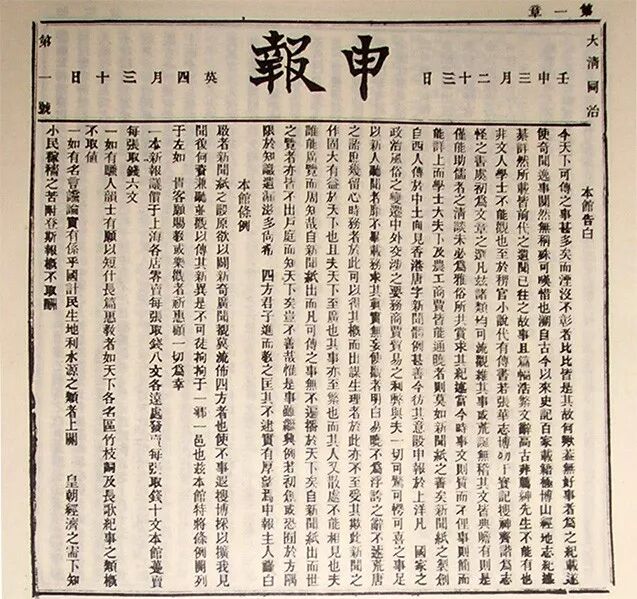 第一章
大清同治
壬申三月二十三日
申報
英四月三十日
第一號
本館告白
今天下可傳之事甚多矣而湮沒不彰者比比皆是其故何歟蓋無好事者為之紀載遂
使奇聞逸事闃然無稱殊可嘆惜也溯自古今以來史記百家載籍極博山經地志紀述
綦詳然所載皆前代之遺聞已往之故事且篇幅浩繁文辭高古非薦紳先生不能有也
非文人學士不能觀也至於稗官小說代有傳書若張華志博物干寶記搜神齊諧為志
怪之書虞初為文章之選凡茲諸類均可流觀雖其事或荒誕無稽其文皆典贍有則是
僅能助儒者之清談未必為雅俗所共賞求其紀述當今時事文則質而不俚事則簡而
能詳上而學士大夫下及農工商賈皆能通曉者則莫如新聞紙之善矣新聞紙之製創
自西人傳於中土向見香港唐字新聞體例甚善今仿其意設申報於上洋凡 國家之
政治風俗之變遷中外交涉之要務商賈貿易之利弊與夫一切可驚可愕可喜之事足
以新人聽聞者靡不畢載務求其真實無妄使觀者明白易曉不為浮誇之辭不述荒唐
之語庶幾留心時務者於此可以得其概而出謀生理者於此亦不至受其欺此新聞之
作固大有益於天下也且夫天下至廣也其事亦至繁也而其人又散處不能相見也夫
誰能廣覽而周知哉自新聞紙出而凡可傳之事無不遍播於天下矣自新聞紙出而世
之覽者亦皆不出戶庭而知天下矣豈不善哉惟是事雖繼興例若初創或恐囿於方隅
限於知識遺漏滋多尚希 四方君子進而教之匡其不逮實有厚望焉申報主人謹白
本館條例
啟者新聞紙之設原欲以闢新奇廣聞觀冀流佈四方者也使不事遐搜博採以擴我見
聞復何資兼聽並觀以傳其新異是不可徒拘拘于一鄉一邑也茲本館特將條例開列
于左如 貴客願賜教或乐觀者祈惠顧一切為幸
一本新報議價于上海各店零賣每張取錢八文各遠處發賣每張取錢十文本館躉賣
每張取錢六文
一如有騷人韻士有願以短什長篇惠教者如天下各名區竹枝詞及長歌紀事之類概
不取値
一如有名言讜論實有係乎國計民生地利水源之類者上關 皇朝經濟之需下知
小民稼穡之苦附登斯報概不取酬